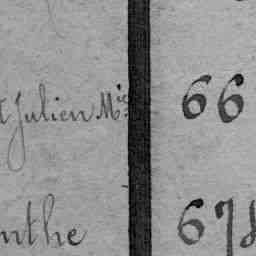 t Julien Mis 66
nthe 678